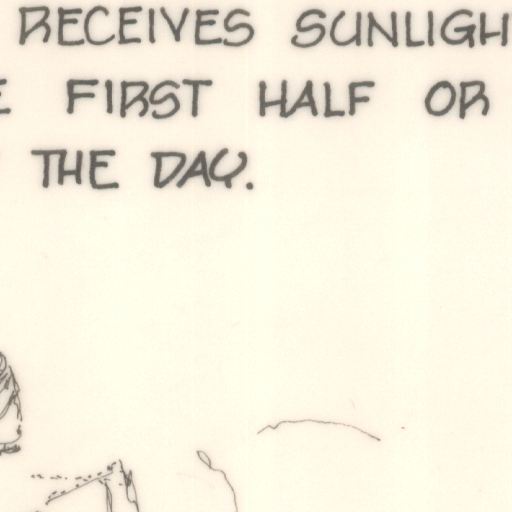 RECEIVES SUNLIGH
FIRST HALF OR
THE DAY.